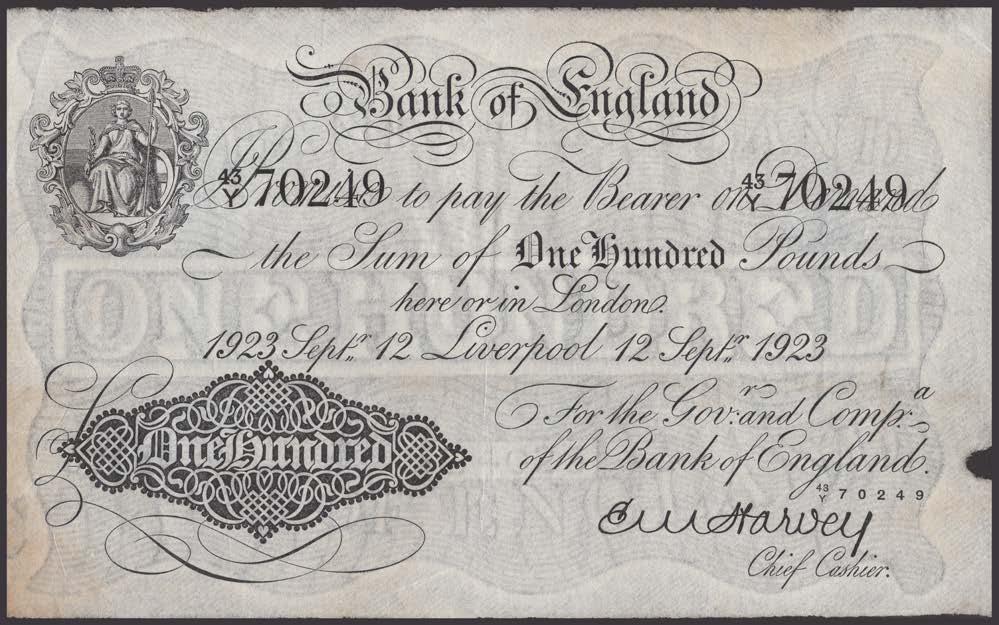 Bank of England
43/Y 70249 Promise to pay the Bearer on Demand 43/Y 70249
the Sum of One Hundred Pounds
here or in London.
1923 Septr. 12 Liverpool 12 Septr. 1923
For the Govr. and Compa.
of the Bank of England.
One Hundred
43/Y 70249
E M Harvey
Chief Cashier.
ONE HUNDRED